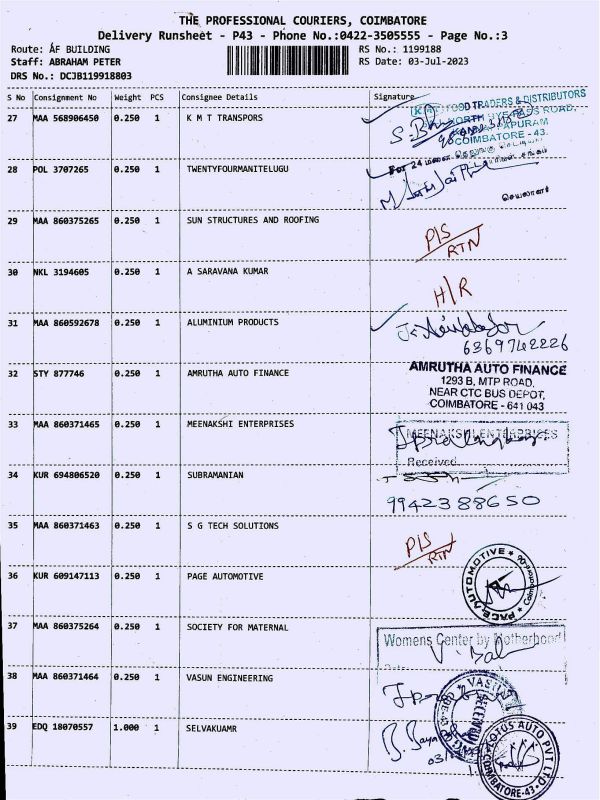 THE PROFESSIONAL COURIERS, COIMBATORE
Delivery Runsheet - P43 - Phone No.:0422-3505555 - Page No.:3
Route: AF BUILDING
RS No.: 1199188
Staff: ABRAHAM PETER
RS Date: 03-Jul-2023
DRS No.: DCJB119918803
S No Consignment No Weight PCS Consignee Details Signature
27 MAA 568906450 0.250 1 K M T TRANSPORS
FOOD TRADERS & DISTRIBUTORS
COIMBATORE - 43.
28 POL 3707265 0.250 1 TWENTYFOURMANITELUGU
For 24 மனை
செயலாளர்
29 MAA 860375265 0.250 1 SUN STRUCTURES AND ROOFING
P/S
RTN
30 NKL 3194605 0.250 1 A SARAVANA KUMAR
H/R
31 MAA 860592678 0.250 1 ALUMINIUM PRODUCTS
6369742226
32 STY 877746 0.250 1 AMRUTHA AUTO FINANCE
AMRUTHA AUTO FINANCE
1293 B, MTP ROAD,
NEAR CTC BUS DEPOT,
COIMBATORE - 641 043
33 MAA 860371465 0.250 1 MEENAKSHI ENTERPRISES
MEENAKSHI ENTERPRISES
Received
34 KUR 694806520 0.250 1 SUBRAMANIAN
9942388650
35 MAA 860371463 0.250 1 S G TECH SOLUTIONS
P/S
RTN
36 KUR 609147113 0.250 1 PAGE AUTOMOTIVE
PAGE AUTOMOTIVE
37 MAA 860375264 0.250 1 SOCIETY FOR MATERNAL
Womens Center by Motherhood
38 MAA 860371464 0.250 1 VASUN ENGINEERING
39 EDQ 18070557 1.000 1 SELVAKUAMR
LOTUS AUTO PVT LTD
COIMBATORE-43